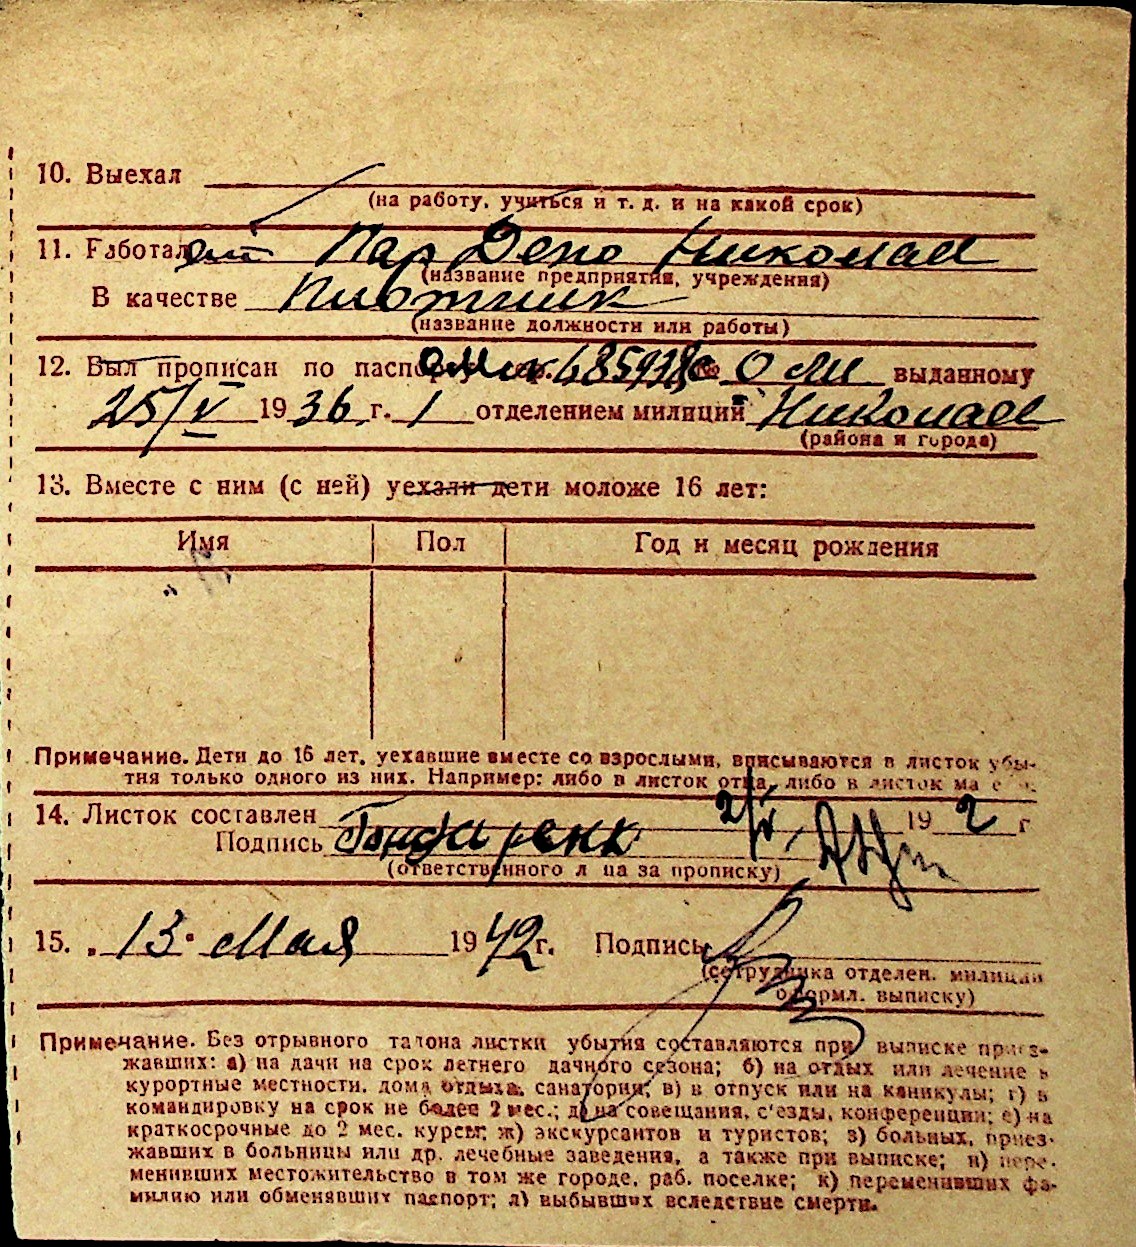 10. Выехал
(на работу, учиться и т. д. и на какой срок)
11. Работал Пар Депо Николаев
(название предприятия, учреждения)
В качестве
(название должности или работы)
12. Был прописан по паспорту сер. 485938 № выданному
25/V 1936 г. 1 отделением милиции Николаев
(района и города)
13. Вместе с ним (с ней) уехали дети моложе 16 лет:
Имя Пол Год и месяц рождения
Примечание. Дети до 16 лет, уехавшие вместе со взрослыми, вписываются в листок убы-
тия только одного из них. Например: либо в листок отца, либо в листок
14. Листок составлен 2/V 19 2 г
Подпись
(ответственного лица за прописку)
15. „13" Мая 1942 г. Подпись
(сотрудника отделен. милиции
оформл. выписку)
Примечание. Без отрывного талона листки убытия составляются при выписке приез-
жавших: а) на дачи на срок летнего дачного сезона; б) на отдых или лечение в
курортные местности, дома отдыха, санатории; в) в отпуск или на каникулы; г) в
командировку на срок не более 2 мес.; д) на совещания, с'езды, конференции; е) на
краткосрочные до 2 мес. курсы; ж) экскурсантов и туристов; з) больных, приез-
жавших в больницы или др. лечебные заведения, а также при выписке; и) пере-
менивших местожительство в том же городе, раб. поселке; к) переменивших фа-
милию или обменявших паспорт; л) выбывших вследствие смерти.